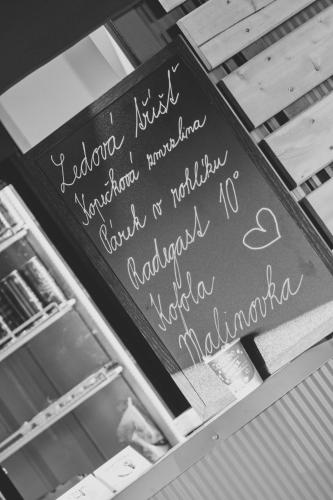 Ledová tříšť
Kopečková zmrzlina
Párek v rohlíku
Radegast 10°
Kofola
Malinovka